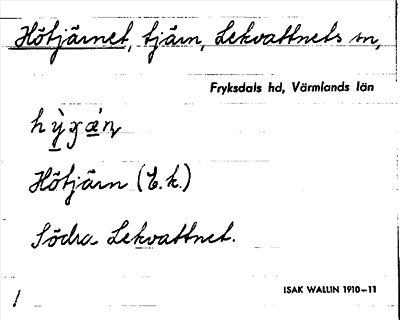 Hötjärnet, tjärn, Lekvattnets sn,
Fryksdals hd, Värmlands län
Hötjärn (E.k.)
Södra Lekvattnet.
ISAK WALLIN 1910–11